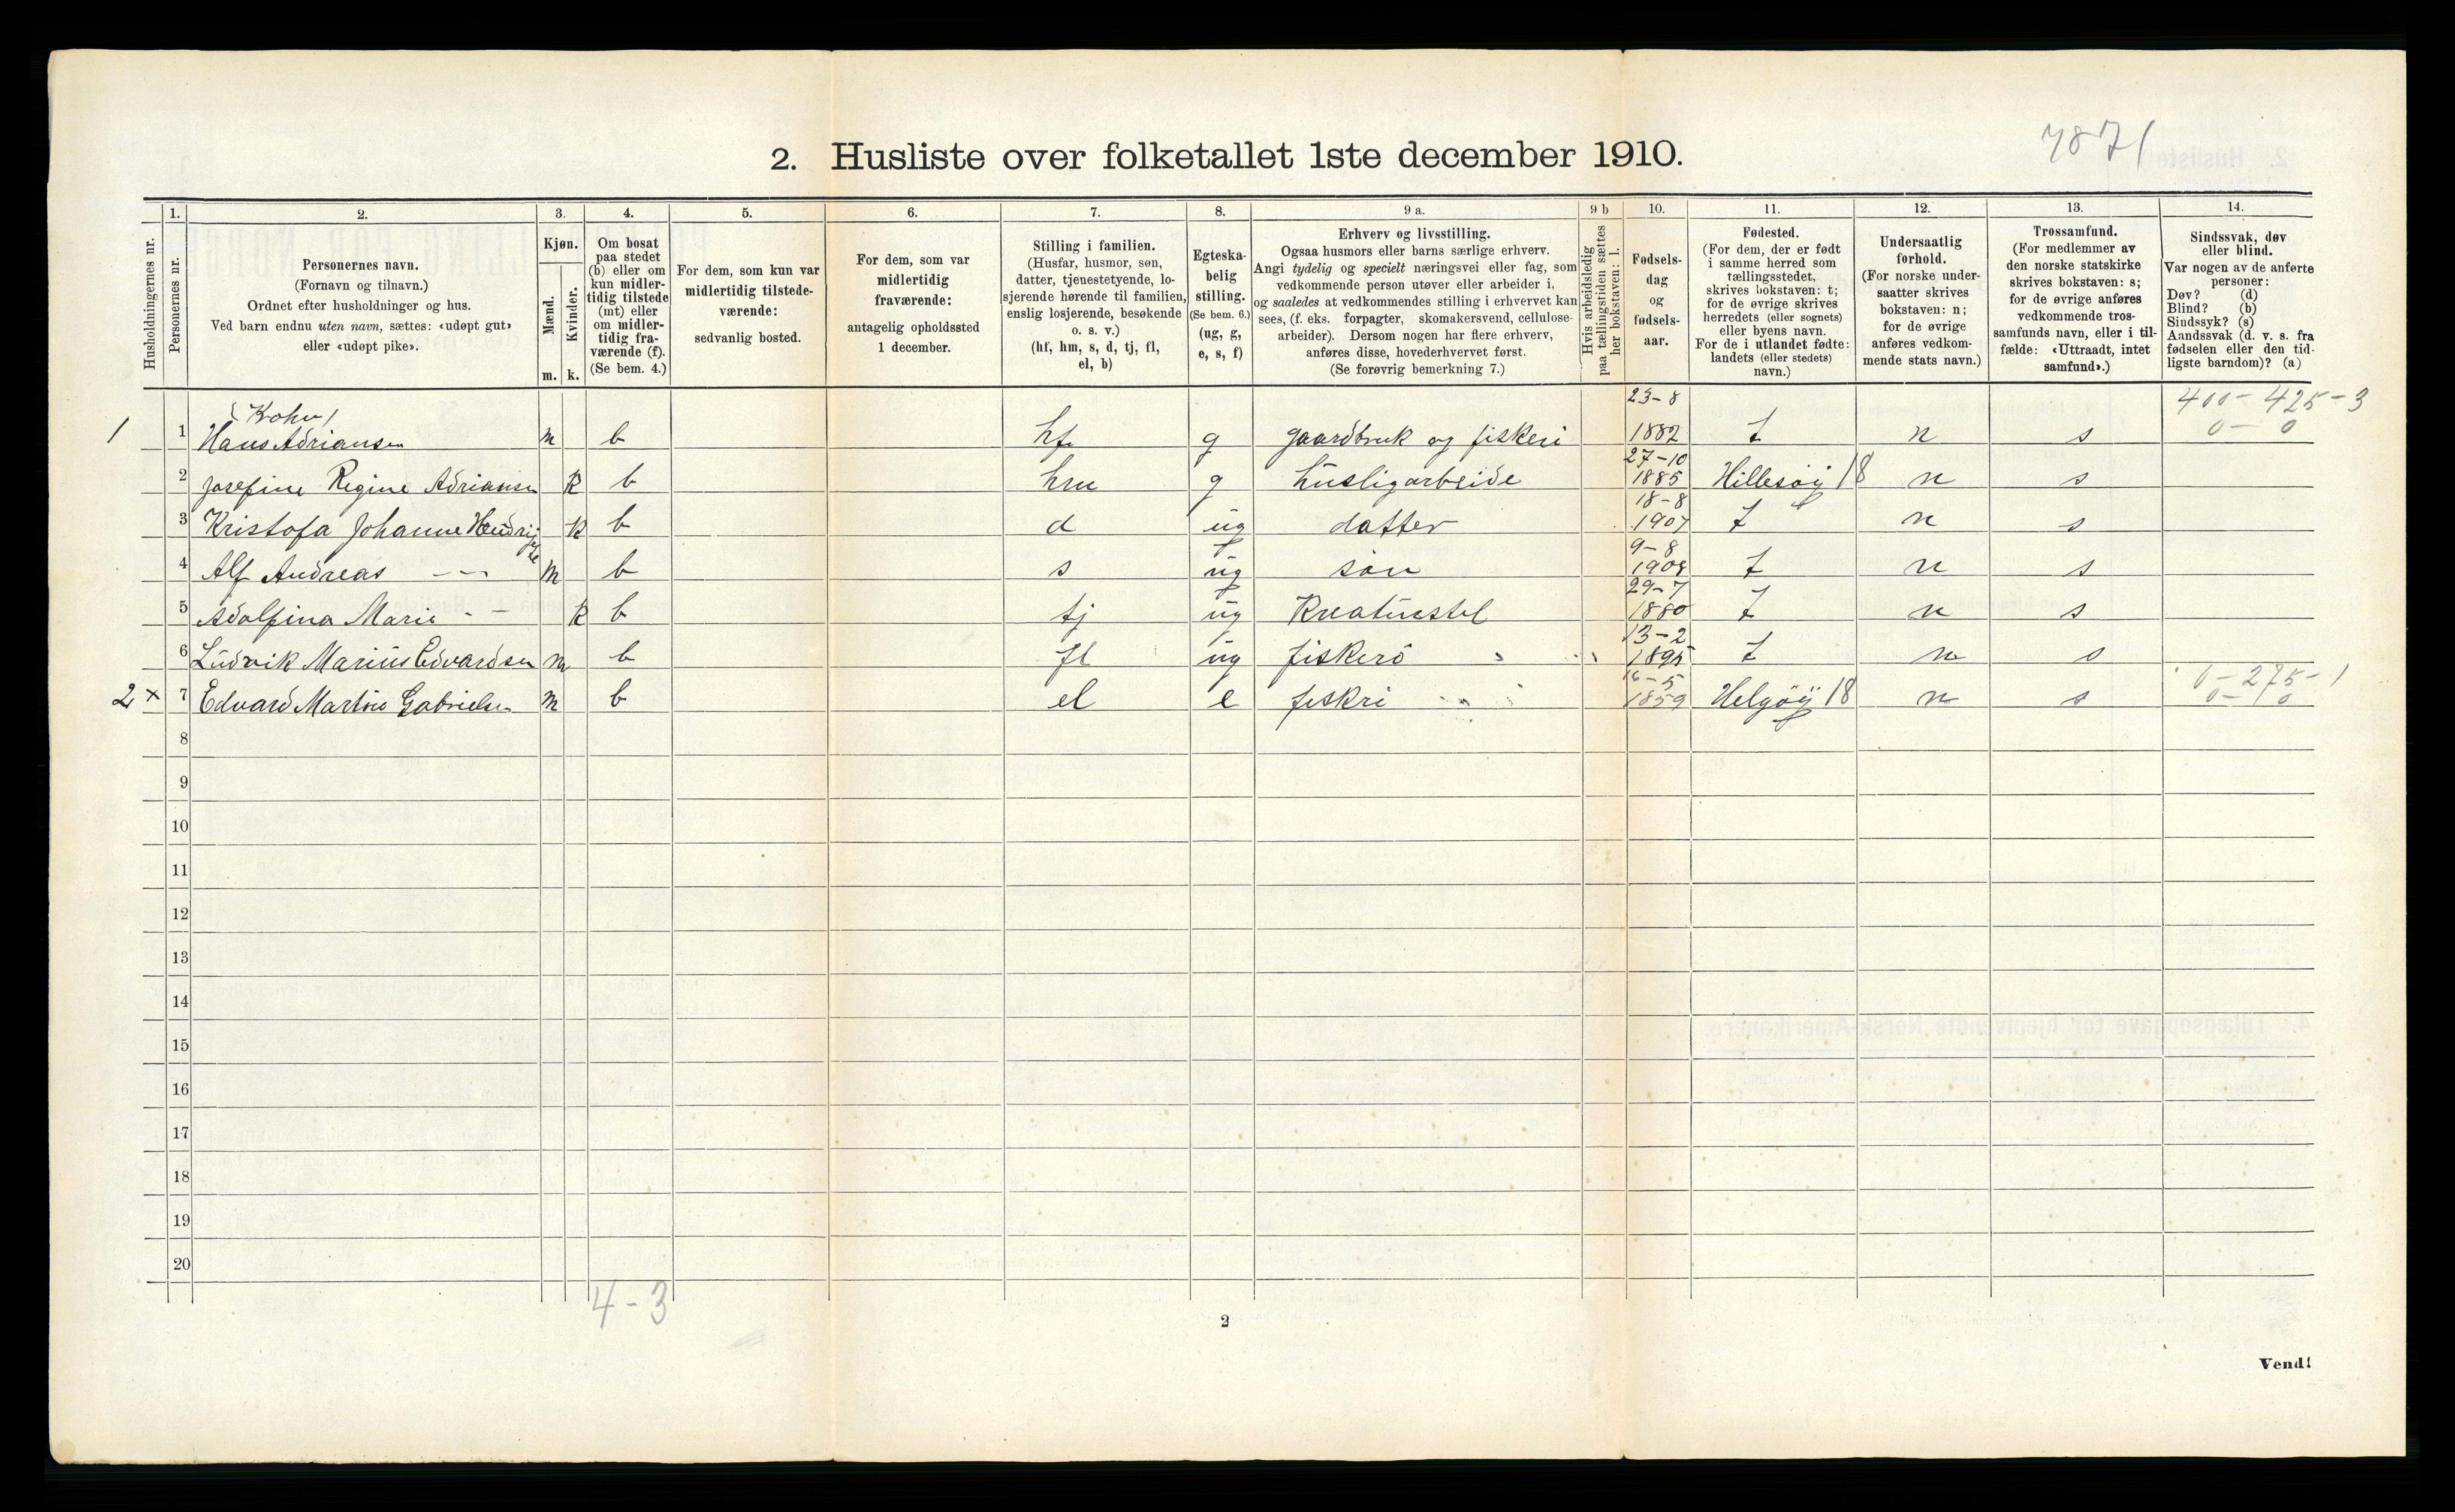 7871
2. Husliste over folketallet 1ste december 1910.
Husholdningernes nr.
1.
Personernes nr.
2.
Personernes navn.
(Fornavn og tilnavn.)
Ordnet efter husholdninger og hus.
Ved barn endnu uten navn, sættes: «udøpt gut»
eller «udøpt pike».
3.
Kjøn.
Mænd.
Kvinder.
m. k.
4.
Om bosat
paa stedet
(b) eller om
kun midler-
tidig tilstede
(mt) eller
om midler-
tidig fra-
værende (f).
(Se bem. 4.)
5.
For dem, som kun var
midlertidig tilstede-
værende:
sedvanlig bosted.
6.
For dem, som var
midlertidig
fraværende:
antagelig opholdssted
1 december.
7.
Stilling i familien.
(Husfar, husmor, søn,
datter, tjenestetyende, lo-
sjerende hørende til familien,
enslig losjerende, besøkende
o. s. v.)
(hf, hm, s, d, tj, fl,
el, b)
8.
Egteska-
belig
stilling.
(Se bem. 6.)
(ug, g,
e, s, f)
9 a.
Erhverv og livsstilling.
Ogsaa husmors eller barns særlige erhverv.
Angi tydelig og specielt næringsvei eller fag, som
vedkommende person utøver eller arbeider i,
og saaledes at vedkommendes stilling i erhvervet kan
sees, (f. eks. forpagter, skomakersvend, cellulose-
arbeider). Dersom nogen har flere erhverv,
anføres disse, hovederhvervet først.
(Se forøvrig bemerkning 7.)
9 b
Hvis arbeidsledig
paa tællingstiden sættes
her bokstaven: l.
10.
Fødsels-
dag
og
fødsels-
aar.
11.
Fødested.
(For dem, der er født
i samme herred som
tællingsstedet,
skrives bokstaven: t;
for de øvrige skrives
herredets (eller sognets)
eller byens navn.
For de i utlandet fødte:
landets (eller stedets)
navn.)
12.
Undersaatlig
forhold.
(For norske under-
saatter skrives
bokstaven: n;
for de øvrige
anføres vedkom-
mende stats navn.)
13.
Trossamfund.
(For medlemmer av
den norske statskirke
skrives bokstaven: s;
for de øvrige anføres
vedkommende tros-
samfunds navn, eller i til-
fælde: «Uttraadt, intet
samfund».)
14.
Sindssvak, døv
eller blind.
Var nogen av de anførte
personer:
Døv? (d)
Blind? (b)
Sindssyk? (s)
Aandssvak (d. v. s. fra
fødselen eller den tid-
ligste barndom)? (a)
23-8 400-425-3
1 1 Hans Adriansen m b hf g gaardbruk og fiskeri 1882 t n s 0-0
27-10
2 Josefine Regine Adriansen k b hm g husligarbeide 1885 Hillesøy 18 n s
18-8
3 Kristofa Johanne k b d ug datter 1907 t n s
9-8
4 Alf Andreas —„— m b s ug søn 1908 t n s
29-7
5 Adolfina Marie - — k b tj ug Kreaturstel 1880 t n s
13-2
6 Ludvik Marius Edvardsen m b fl ug fiskeri 1895 t n s
16-5 0-275-1
2 x 7 Edvard Martin Gabrielsen m b el e fiskri 1859 Helgøy 18 n s 0-0
8
9
10
11
12
13
14
15
16
17
18
19
20
4-3
2
Vend!